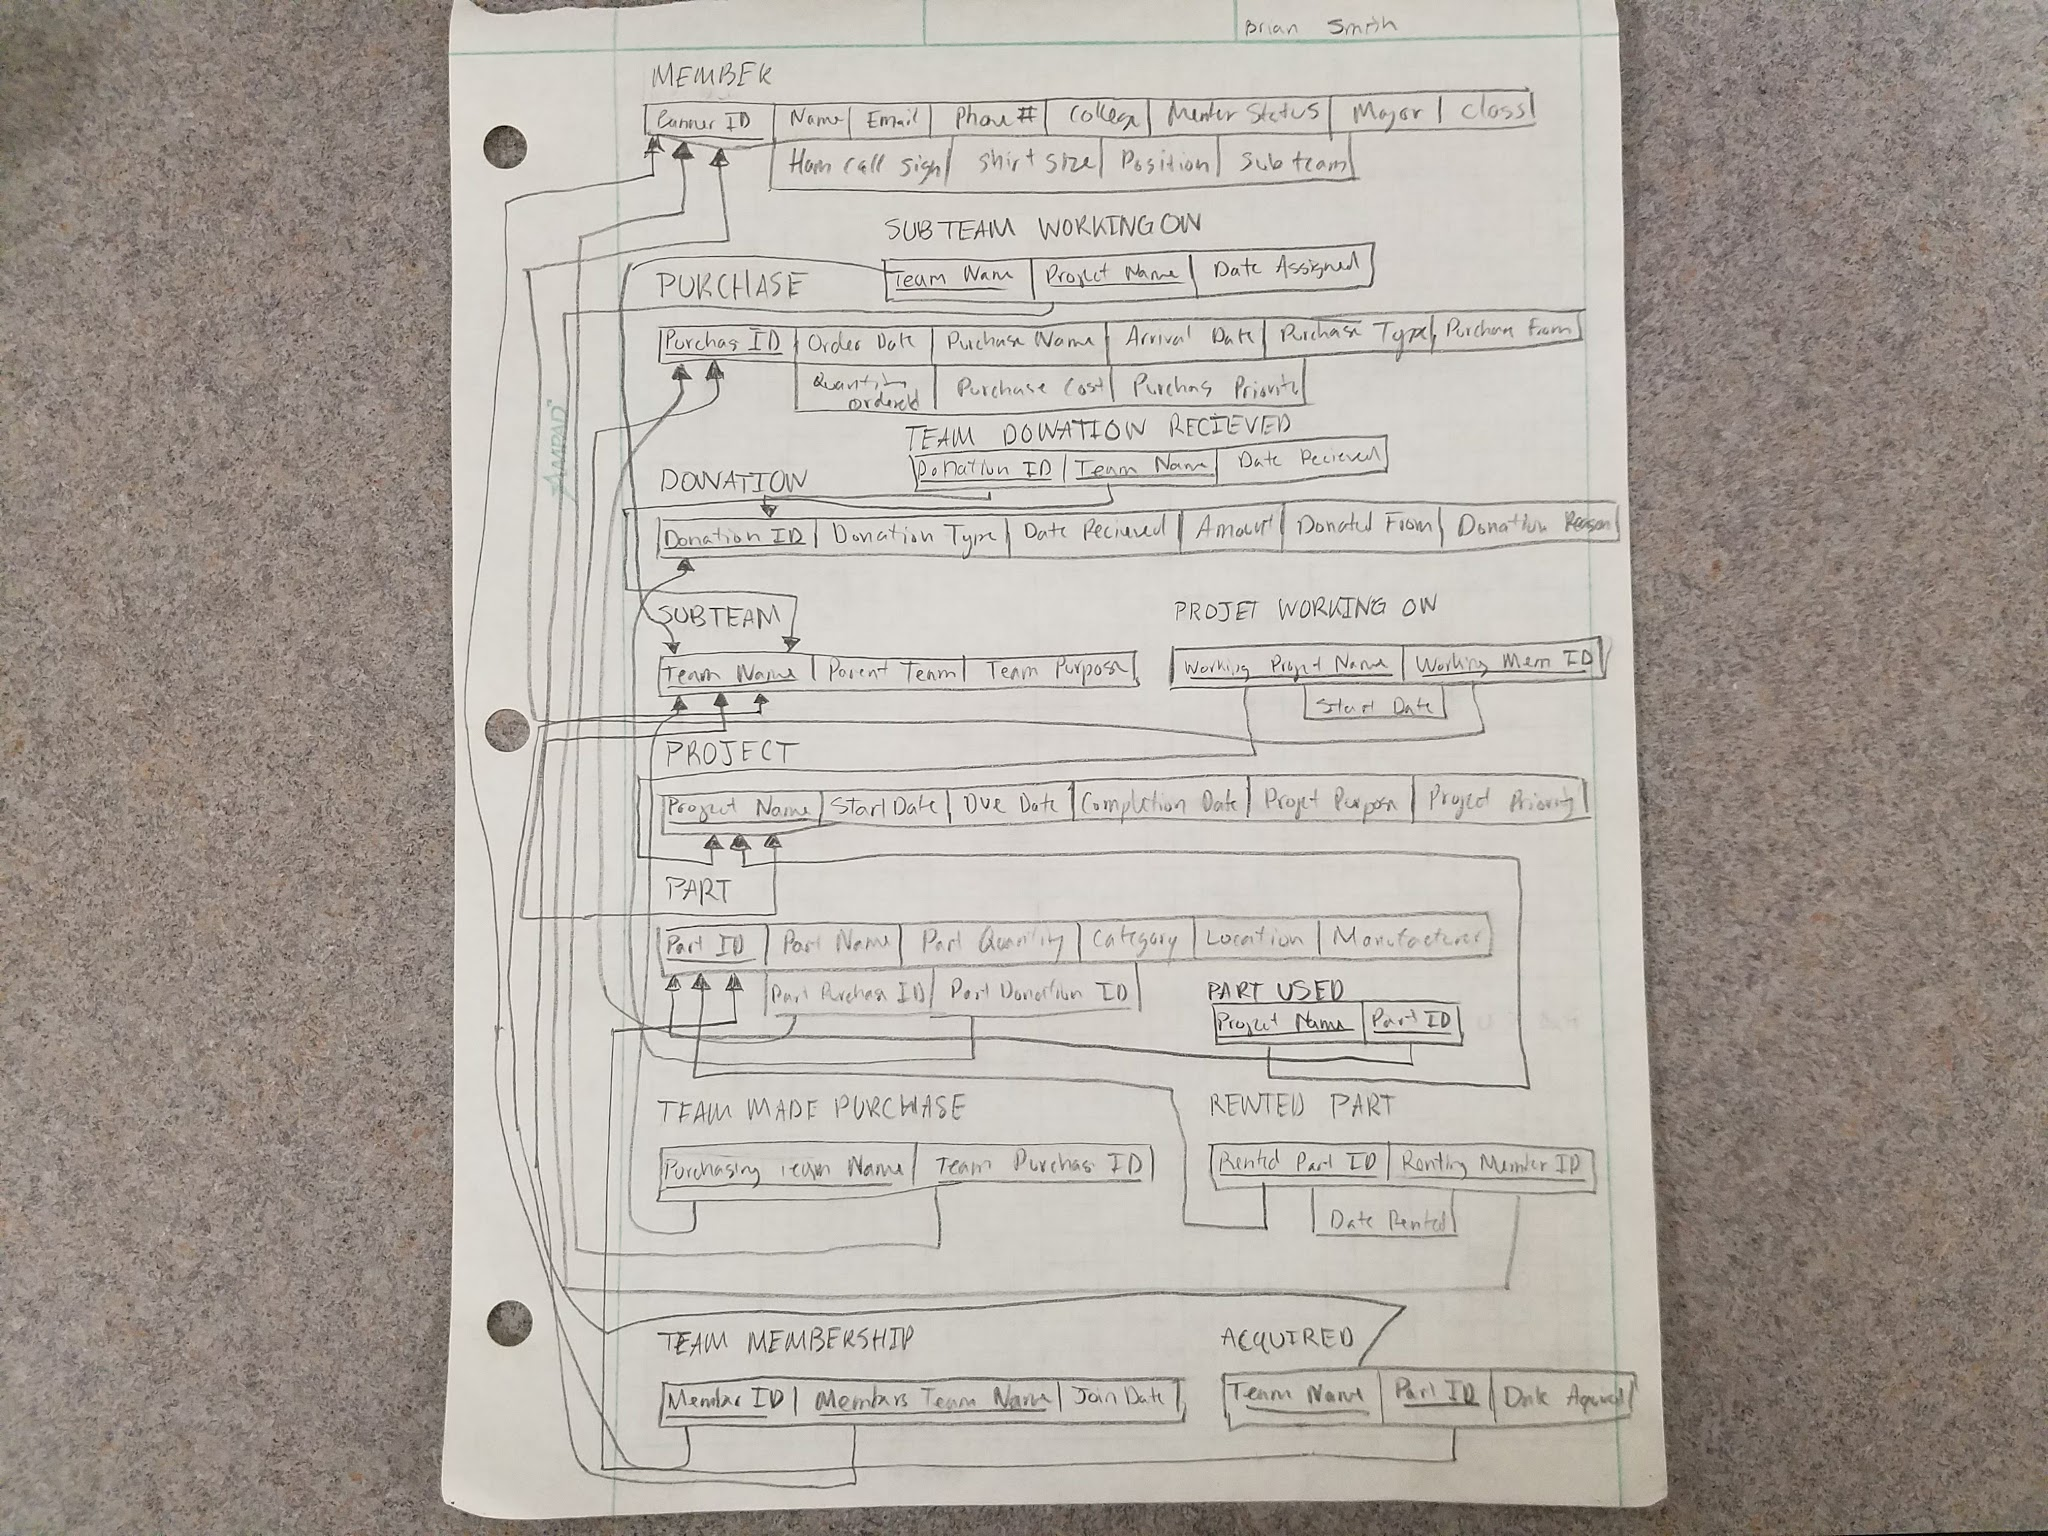 Brian Smith
MEMBER
Banner ID Name Email Phone # College Member Status Major Class
Ham call sign Shirt size Position Sub team
SUBTEAM WORKING ON
Team Name Project Name Date Assigned
PURCHASE
Purchas ID Order Date Purchase Name Arrival Date Purchase Type Purchase From
Quantity Ordered Purchase Cost Purchas Priority
TEAM DONATION RECIEVED
Donation ID Team Name Date Recieved
DONATION
Donation ID Donation Type Date Recieved Amount Donated From Donation Reason
AMPAD
SUBTEAM
Team Name Parent Team Team Purpose
PROJET WORKING ON
Working Projet Name Working Mem ID
Start Date
PROJECT
Project Name Start Date Due Date Completion Date Projet Purpose Project Priority
PART
Part ID Part Name Part Quantity Category Location Manufacturer
Part Purchase ID Part Donation ID
PART USED
Project Name Part ID
TEAM MADE PURCHASE
Purchasing Team Name Team Purchas ID
RENTED PART
Rented Part ID Renting Member ID
Date Rented
TEAM MEMBERSHIP
Member ID Members Team Name Join Date
ACQUIRED
Team Name Part ID Date